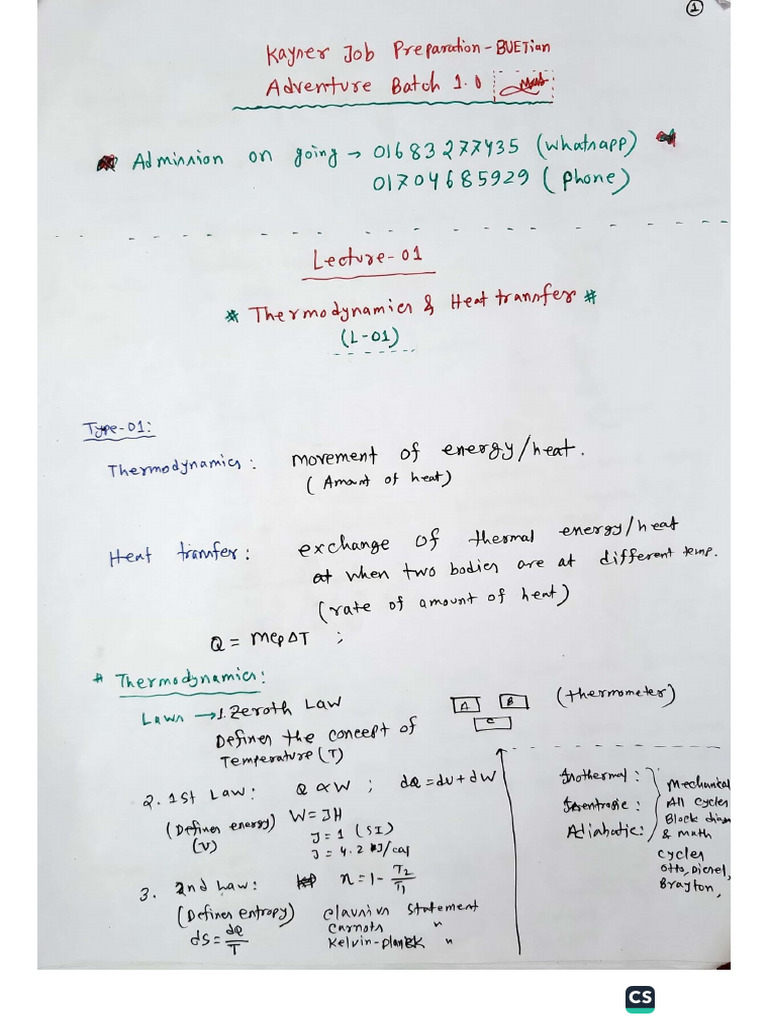 1
Kayner Job Preparation - BUETian
Adventure Batch 1.0
Admission on going → 01683277435 (whatsapp)
01704685929 (phone)
Lecture-01
* Thermodynamics & Heat transfer *
(L-01)
Type-01:
Thermodynamics: movement of energy/heat.
(Amount of heat)
Heat transfer: exchange of thermal energy/heat
when two bodies are at different temp.
(rate of amount of heat)
Q = mcpΔT ;
# Thermodynamics:
Laws → 1. Zeroth Law
A B C (thermometer)
Defines the concept of
Temperature (T)
2. 1st Law: Q ∝ W ; dQ = dU + dW
(Defines energy) W = JH
(U) J = 1 (SI)
J = 4.2 J/cal
3. 2nd Law: n = 1 - T2/T1
(Defines entropy) Clausius statement
dS = dQ/T Carnots "
Kelvin-Plank "
Isothermal:
Isentropic:
Adiabatic:
Mechanical
All cycles
Block diagm
& math
cycles
Otto, Diesel,
Brayton,
CS